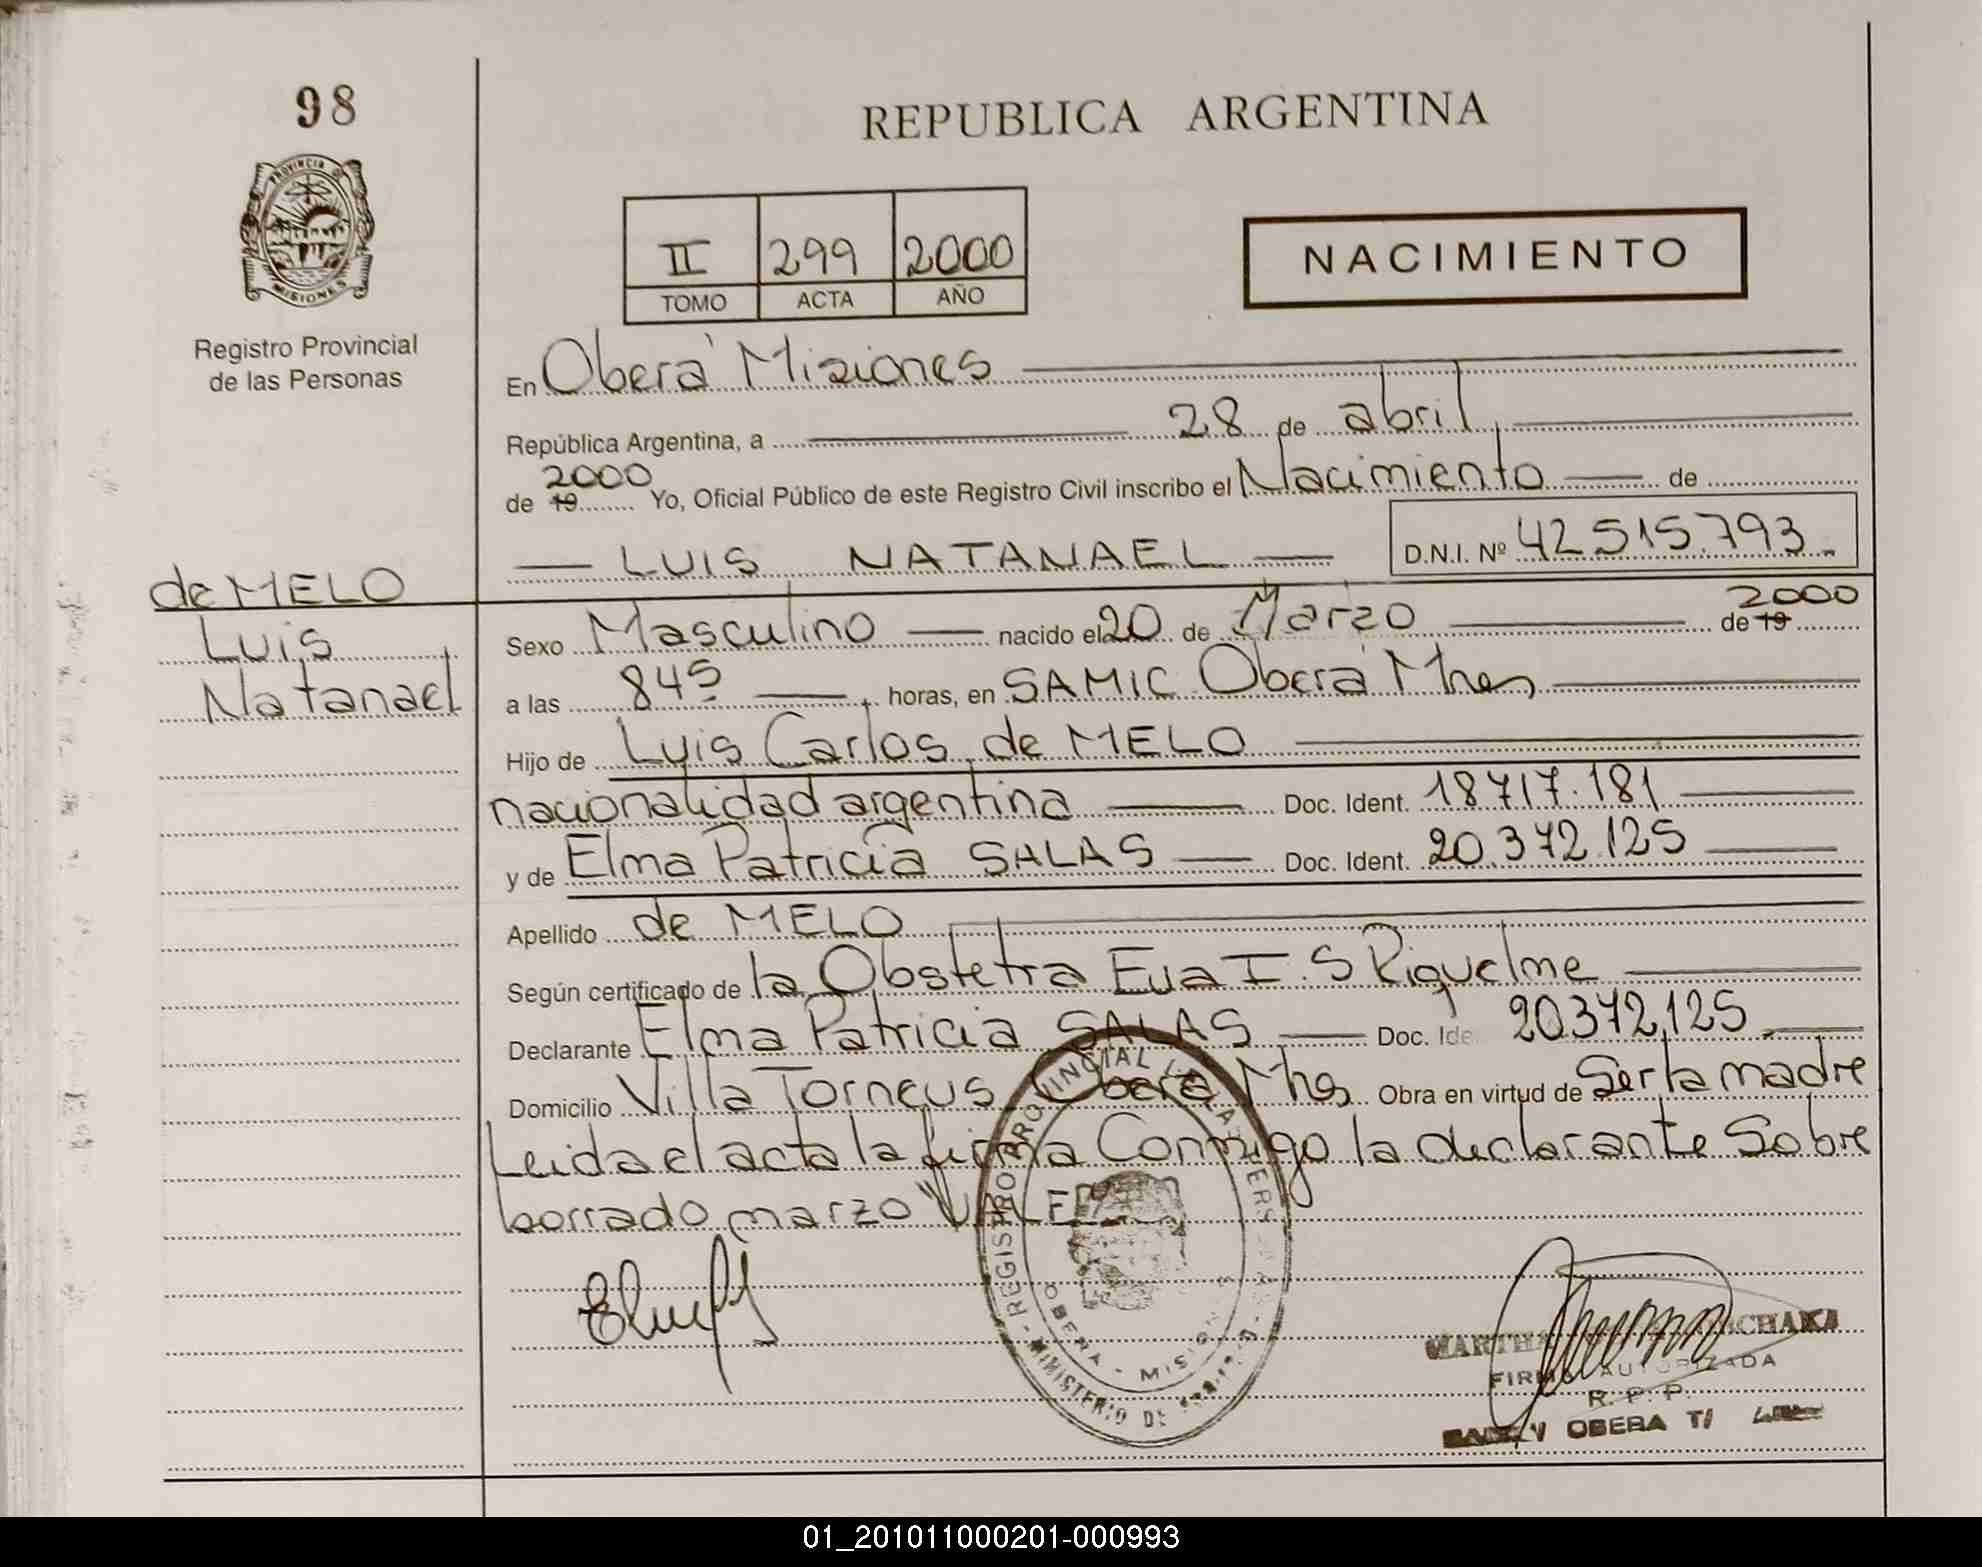 98
REPUBLICA ARGENTINA
PROVINCIA DE
MISIONES
II 299 2000
TOMO ACTA AÑO
NACIMIENTO
Registro Provincial
de las Personas
En Oberá Misiones
República Argentina, a 28 de abril
de 19 2000 Yo, Oficial Público de este Registro Civil inscribo el Nacimiento de
LUIS NATANAEL D.N.I. Nº 42515.793
de MELO
Luis
Natanael
Sexo Masculino nacido el 20 de Marzo de 19 2000
a las 845 horas, en SAMIC Oberá Mnes
Hijo de Luis Carlos de MELO
nacionalidad argentina Doc. Ident. 18717.181
y de Elma Patricia SALAS Doc. Ident. 20.372.125
Apellido de MELO
Según certificado de la Obstetra Eva I. S Riquelme
Declarante Elma Patricia SALAS Doc. Ide 20.372.125
Domicilio Villa Torneus Oberá Mnes Obra en virtud de Ser la madre
Leida el acta la firma Conmigo la declarante Sobre
borrado marzo VALE
REGISTRO PROVINCIAL DE LAS PERSONAS
MINISTERIO DE
OBERA - MISIONES
MARTHA CHAKA
FIRMA AUTORIZADA
R. P. P.
OBERA
01_201011000201-000993